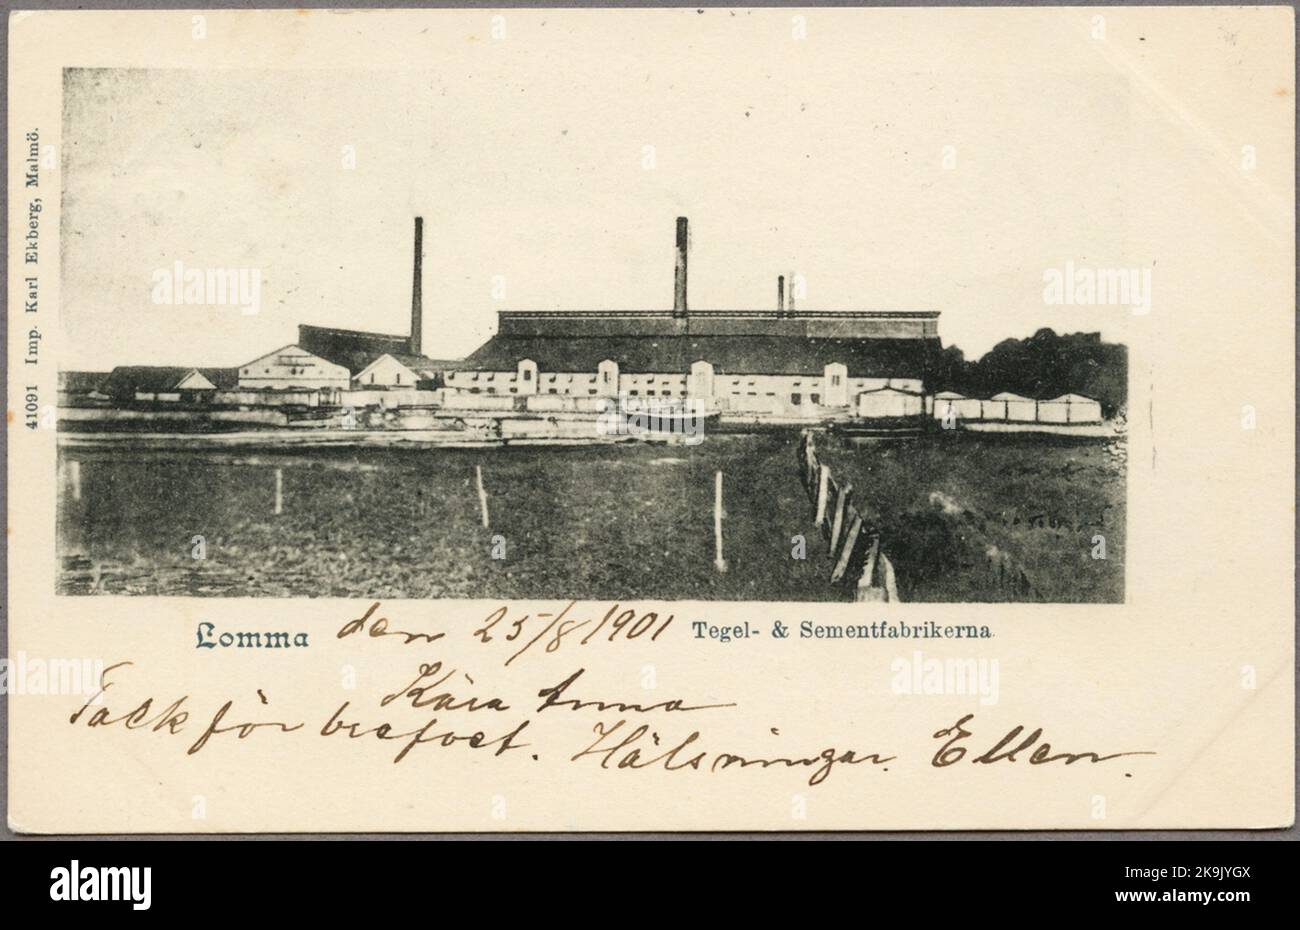 41091 Imp. Karl Ekberg, Malmö.
Lomma den 25/8 1901 Tegel- & Sementfabrikerna.
Kära Anna
Tack för brefvet. Hälsningar. Ellen.
alamy
Image ID: 2K9JYGX
www.alamy.com